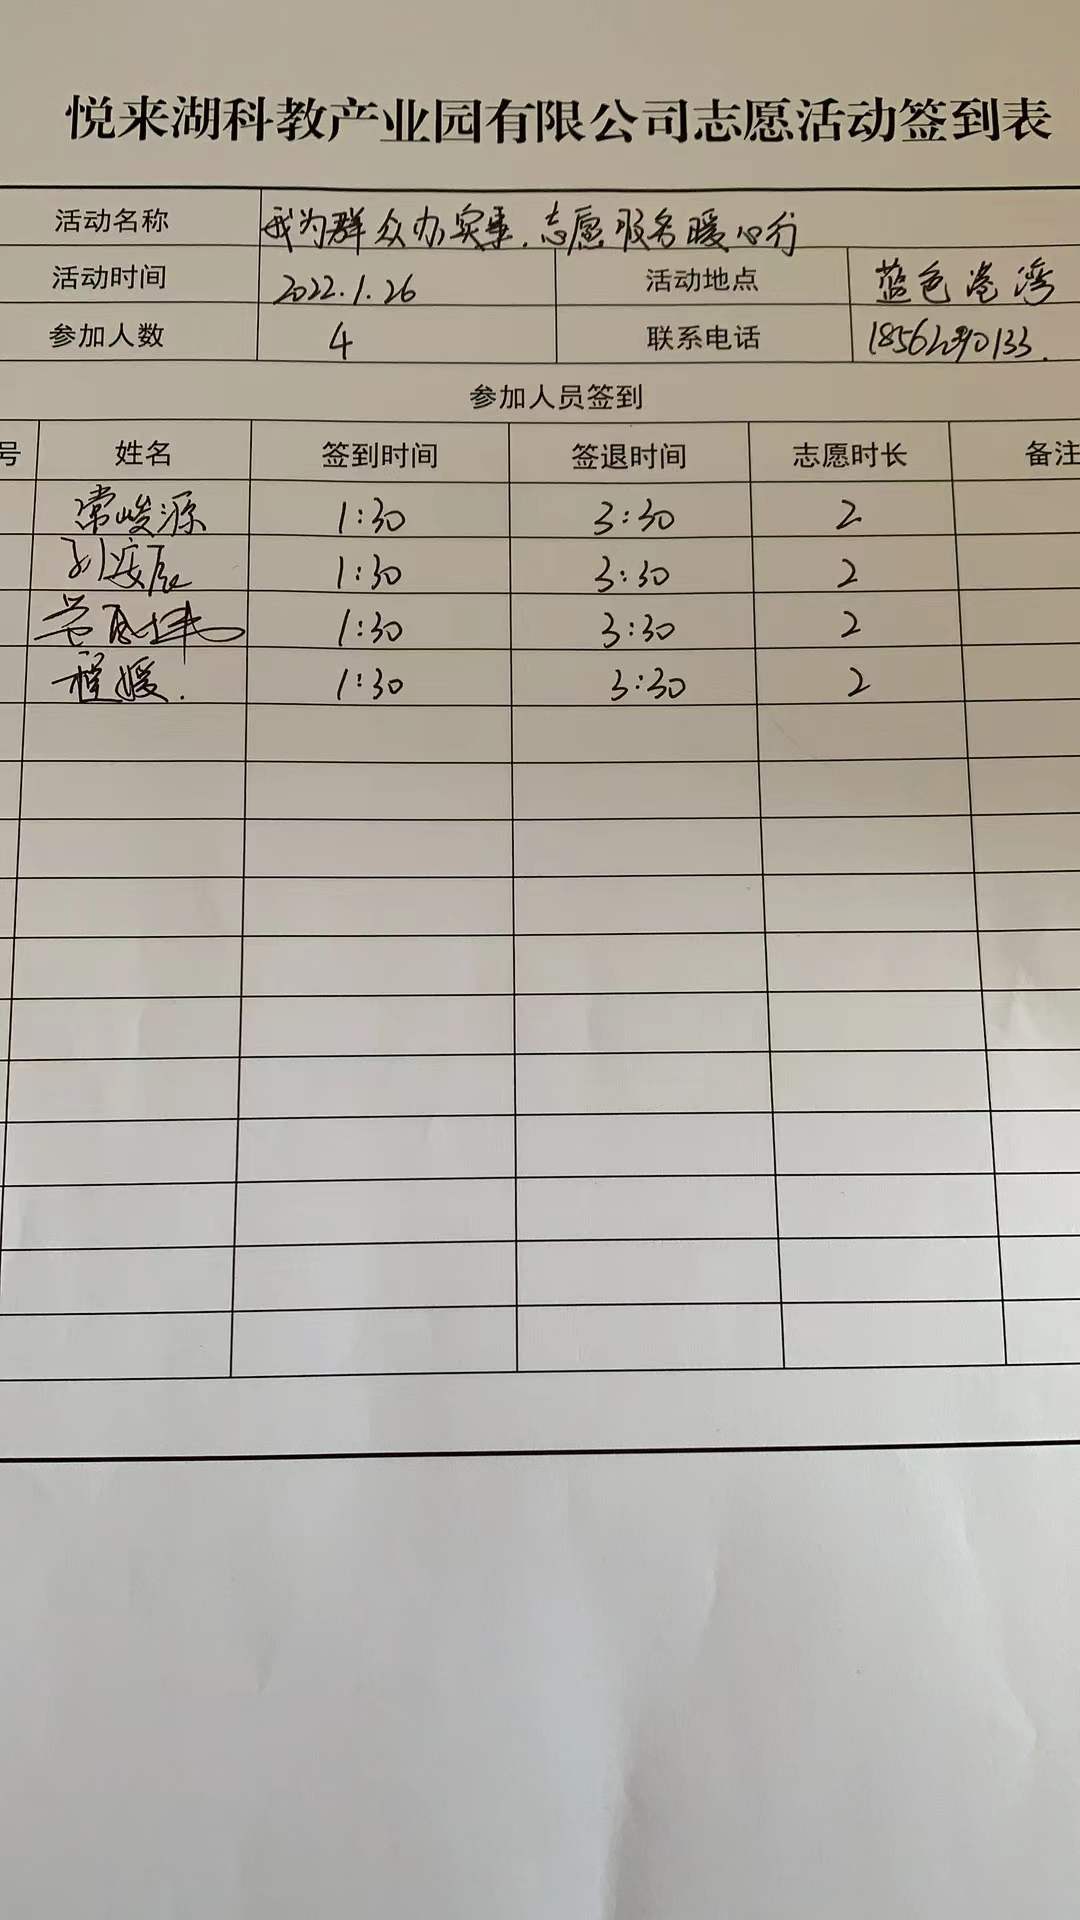 悦来湖科教产业园有限公司志愿活动签到表
活动名称 我为群众办实事.志愿服务暖心行
活动时间 2022.1.26 活动地点 蓝色港湾
参加人数 4 联系电话
参加人员签到
号 姓名 签到时间 签退时间 志愿时长 备注
常峻源 1:30 3:30 2
1:30 3:30 2
1:30 3:30 2
程媛. 1:30 3:30 2